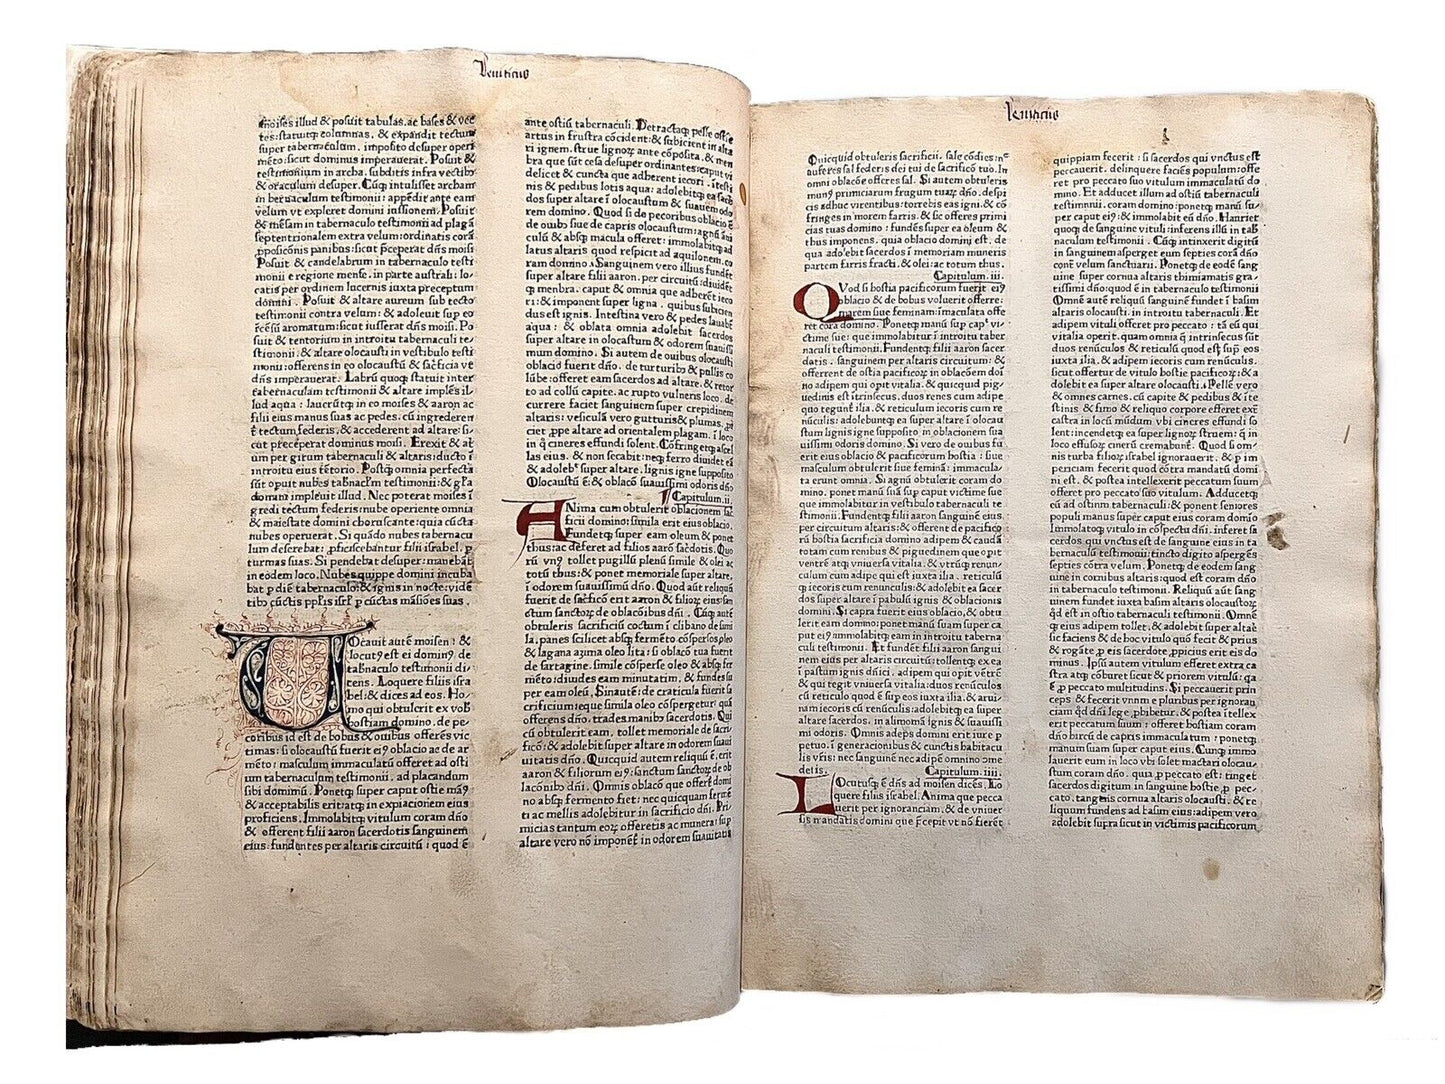 Leuiticus
moises illud & posuit tabulas. ac bases & vec
tes: statuitq; columnas. & expandit tectum
super tabernaculum. imposito desuper operi
mēto: sicut dominus imperauerat. Posuit &
testimonium in archa. subditis infra vectibꝰ
& oraculum desuper. Cūq; intulisset archam
in tabernaculum testimonii: appēdit ante eam
velum vt expleret domini iussionem. Posuit
& mēsam in tabernaculo testimonii ad plagā
septentrionalem extra velum: ordinatis corā
pposicōnis panibus: sicut pceperat dn̄s moisi
Posuit & candelabrum in tabernaculo testi
monii e regione mense. in parte australi: lo⸗
catis per ordinem lucernis iuxta preceptum
domini. Posuit & altare aureum sub tecto
testimonii contra velum: & adoleuit sup eo
īcēsū aromatum: sicut iusserat dn̄s moisi. Po
suit & tentorium in introitu tabernaculi te⸗
stimonii: & altare olocausti in vestibulo testi
monii: offerens in eo olocaustū & sacrificia vt
dn̄s imperauerat. Labrū quoq; statuit inter
tabernaculum testimonii & altare implēs il⸗
lud aqua: laueruntq; in eo moises & aaron ac
filii eius manus suas ac pedes. cū ingrederent
tectum federis. & accederent ad altare: si⸗
cut preceperat dominus moisi. Erexit & at
um per girum tabernaculi & altaris: ducto ī
introitu eius tētorio. Postq; omnia perfecta
sūt opuit nubes tabnaclm testimonii: & glā
domini impleuit illud. Nec poterat moises ī
gredi tectum federis: nube operiente omnia
& maiestate domini choruscante: quia cūcta
nubes operuerat. Si quādo nubes tabernacu
lum deserebat: pficiscebantur filii israhel. p
turmas suas. Si pendebat desuper: manebāt
in eodem loco. Nubes quippe domini incuba
bat p diē tabernaculo: & ignis in nocte: vidē
tibꝰ cūctis pplis isrl p cūctas māsiōes suas.
VOcauit autē moisen: &
locutꝰ est ei dominꝰ de
tabnaculo testimonii di⸗
cens. Loquere filiis isra
hel: & dices ad eos. Ho⸗
mo qui obtulerit ex vobꝰ
hostiam domino. de pe⸗
coribus id est de bobus & ouibus offerēs vic
timas: si olocaustū fuerit eiꝰ oblacio ac de ar
mēto: masculum immaculatū offeret ad osti
um tabernaculum testimonii. ad placandum
sibi dominū. Ponetq; super caput ostie manꝰ
& acceptabilis erit: atq; in expiacionem eius
proficiens. Immolabitq; vitulum coram dn̄o
& offerent filii aaron sacerdotis sanguinem
eius: fundentes per altaris circuitū ; quod ē
ante ostiū tabernaculi. Detractaq; pelle ostie
artus in frustra cōcident: & subicient in alta
ri ignem. strue lignoꝝ ante cōposita. & mem
bra que sūt cesa desuper ordinantes: caput vi
delicet & cuncta que adherent iecori. itesti
nis & pedibus lotis aqua: adolebitq; ea sacdꝰ
super altare ī olocaustum & suauem odo
rem domino. Quod si de pecoribus oblacio ē
de ouibꝰ siue de capris olocaustum: agnū ani
culū & absq; macula offeret: immolabitq; ad
latus altaris quod respicit ad aquilonem. co
ram domino. Sanguinem vero illius fundēt
super altare filii aaron. per circuitū: diuidēt
q; menbra. caput & omnia que adherēt ieco
ri: & imponent super ligna. quibus subicien
dus est ignis. Intestina vero & pedes lauabt̄
aqua: & oblata omnia adolebit sacerdos
super altare in olocaustum & odorem suauissi
mum domino. Si autem de ouibus olocausti
oblacio fuerit dn̄o. de turturibꝰ & pullis co
lūbe: offeret eam sacerdos ad altare. & retor
to ad collū capite. ac rupto vulneris loco. de
currere faciet sanguinem super crepidinem
altaris: vesiculā vero gutturis & plumas. p̄i
ciet ppe altare ad orientalem plagam. ī loco
in q̄ cineres effundi solent. Cōfringetq; ascel
las eius. & non secabit: neq; ferro diuidet eā
& adolebꝰ super altare. lignis igne supposito
Olocaustū ē: & oblacō suauissimi odoris dn̄o
Capitulum. ii.
ANima cum obtulerit oblacionem sac
ficii domino: simila erit eius oblacio.
Fundetq; super eam oleum & ponet
thus: ac deferet ad filios aarō sacdotis. Quo
rū vnꝰ tollet pugillū plenū simile & olei ac
totū thus: & ponet memoriale super altare.
ī odorem suauissimū dn̄o. Quod aūt reliquū
fuerit de sacficō erit aaron & filioꝝ eius: san
ctum sanctoꝝ de oblacōibus dn̄i. Cūq; autē
obtuleris sacrificiū coctum ī clibano de simi
la. panes scilicet absq; fermēto cōspersos oleo
& lagana azima oleo lita: si oblacō tua fuerit
de sartagine. simile cōsperse oleo & absq; fer
mēto: diuides eam minutatim. & fundes su
per eam oleū. Sinautē: de craticula fuerit sa
crificium: eque simila oleo cōspergetur quā
offerens dn̄o. trades manibꝰ sacerdotis. Qui
cū obtulerit eam. tollet memoriale de sacri⸗
ficō: & adolebit super altare in odorem suaui
uitatis dn̄o. Quicquid autem reliquū ē. erit
aaron & filiorum eiꝰ: sanctum sanctoꝝ de ob
lacōnibꝰ dn̄i. Omnis oblacō que offert domi
no absq; fermento fiet: nec quicquam fermē
ti ac mellis adolebitur in sacrificio dn̄i. Pri
micias tantum eoꝝ offeretis ac munera: sup
altare vero nō imponēt̄ in odorem suauitatis
Leuiticus
Quicquid obtuleris sacrificii. sale cōdies: nec
auferes sal federis dei tui de sacrificō tuo. In
omni oblacōe offeres sal. Si autem obtuleris
munꝰ primiciarum frugum tuaꝝ dn̄o. despi
cis adhuc virentibus: torrebis eas igni. & cō
fringes in morem farris. & sic offeres primi
cias tuas domino: fundēs super ea oleum &
thus imponens. quia oblacio domini est. de
qua adolebit sacerdos ī memoriam muneris
partem farris fracti. & olei: ac totum thus.
Capitulum. iii.
QVod si hostia pacificorum fuerit eiꝰ
oblacio & de bobus voluerit offerre:
marem siue feminam: immaculata offe
ret corā domino. Ponetq; manū sup capꝰ vi⸗
ctime sue: que immolabitur ī introitu taber
naculi testimonii. Fundentq; filii aaron sacer
dotis. sanguinem per altaris circuitum: &
offerrent de ostia pacificorum in oblacōem doi
no adipem qui opit vitalia. & quicquid pig⸗
uedinis est intrīsecus: duos renes cum adipe
quo tegunt̄ ilia. & reticulum iecoris cum re
nūculis: adolebuntq; ea super altare ī olocau
stum lignis igne supposito in oblacionem sua
uissimi odoris domino. Si vero de ouibus fu
erit eius oblacio & pacificorum hostia: siue
masculum obtulerit siue feminā: immacula
ta erunt omnia. Si agnū obtulerit coram do
mino. ponet manū suā sup caput victime sue
que immolabitur in vestibulo tabernaculi te
stimonii. Fundentq; filii aaron sanguinem eius
per circuitum altaris: & offerent de pacifico⸗
rū hostia sacrificiū domino adipem & caudā
totam cum renibus & piguedinem que opit
ventrē atq; vniuersa vitalia: & vtrūq; renun⸗
culum cum adipe qui est iuxta ilia. reticulū
q; iecoris cum renunculis. & adolebit ea sacer
dos super altare ī pabulū ignis & oblacionis
domini. Si capra fuerit eius oblacio. & obtu
lerit eam domino: ponet manū suam super ca
put eiꝰ: immolabitq; eam in introitu taberna
culi testimonii. Et fundēt filii aaron sangui
nem eius per altaris circuitū: tollentq; ex ea
ī pastum ignis dn̄ici. adipem qui opit vētrē
& qui tegit vniuersa vitalia: duos renūculos
cū reticulo quod ē sup eos iuxta ilia. & arui⸗
nam iecoris cū renūculis: adolebitq; ea super
altare sacerdos. in alimoniā ignis & suauissi
mi odoris. Omnis adeps domini erit iure p
petuo. ī generacionibus & cunctis habitacu
lis vr̄is: nec sanguinem nec adipem omnino ꝯme
detis.
Capitulum. iiii.
LOcutusq; ē dn̄s ad moisen dicēs. Lo
quere filiis israhel. Anima que pecca
uerit per ignoranciam. & de vniuer⸗
sis mandatis domini que pcepit vt nō fierēt
quippiam fecerit: si sacerdos qui vnctus est
peccauerit. delinquere faciēs populum: offe
ret pro peccato suo vitulum immaculatū do
mino. Et adducet illum ad ostiū tabernaculi
testimonii. coram domino: ponetq; manū su⸗
per caput eiꝰ & immolabit eū dn̄o. Hauriet
quoq; de sanguine vituli: inferens illū in tab̄
naculum testimonii. Cūq; intinxerit digitū
in sanguinem asperget eum septies corā dn̄o
cōtra velum sanctuarii. Ponetq; de eodē sang
uine super cornua altaris thimiamatis gra⸗
tissimi dn̄o: quod ē in tabernaculo testimonii
Omnē autē reliquū sanguinē fundet ī basim
altaris olocausti. in introitu tabernaculi. Et
adipem vituli offeret pro peccato: tā eū qui
vitalia operit. quam omnia q̄ intrinsecus sūt
duos renūculos & reticulū quod est sup eos
iuxta ilia. & adipem iecoris cum renūculis.
sicut offertur de vitulo hostie pacificoꝝ: & a
dolebit ea super altare olocausti. Pellē vero
& omnes carnes. cū capite & pedibus & īte
stinis & fimo & reliquo corpore efferet extra
castra in locū mūdum vbi cineres effundi so
lent: incendetq; ea super lignoꝝ struem: q̄ in
loco effusoꝝ cinerū cremabunt̄. Quod si om⸗
nis turba filioꝝ israhel ignorauerit. & p im
periciam fecerit quod cōtra mandatū domi
ni est. & postea intellexerit peccatum suum
offeret pro peccato suo vitulum. Adducetq;
eū ad ostium tabernaculi: & ponent seniores
populi manus super caput eius coram domino
Immolatoq; vitulo in cōspectu dn̄i. inferet sa
cerdos qui vnctus est de sanguine eius in tab̄
naculū testimonii: tincto digito aspergēs
septies cōtra velum. Ponetq; de eodem sang
uine in cornibus altaris: quod est coram dn̄o
in tabernaculo testimonii. Reliquū aūt sang
uinem fundet iuxta basim altaris olocaustoꝝ:
qd̄ est in ostio tabernaculi testimonii. Omnē
q; eius adipem tollet. & adolebit super altare
sic faciens & de hoc vitulo quō fecit & prius
& rogātē p eis sacerdote. ppicius erit eis do
minus. Ipsū autem vitulum efferet extra ca
stra atq; cōburet sicut & priorem vitulū: q̄a
ē p peccato multitudinis. Si peccauerit prin
ceps & fecerit vnum e pluribus per ignorā
ciam qd̄ dn̄i lege phibetur. & postea itellex
erit peccatum suum: offeret hostiam coram
dn̄o hircū de capris immaculatum: ponetq;
manum suam super caput eius. Cunq; immo
lauerit eum in loco vbi solet mactari olocau
stum coram dn̄o. quia p peccato est: tinget
sacerdos digitum in sanguine hostie p pec⸗
cato. tangens cornua altaris olocausti. & re
liquum fundens ad basim eius: adipem vero
adolebit supra sicut in victimis pacificorum